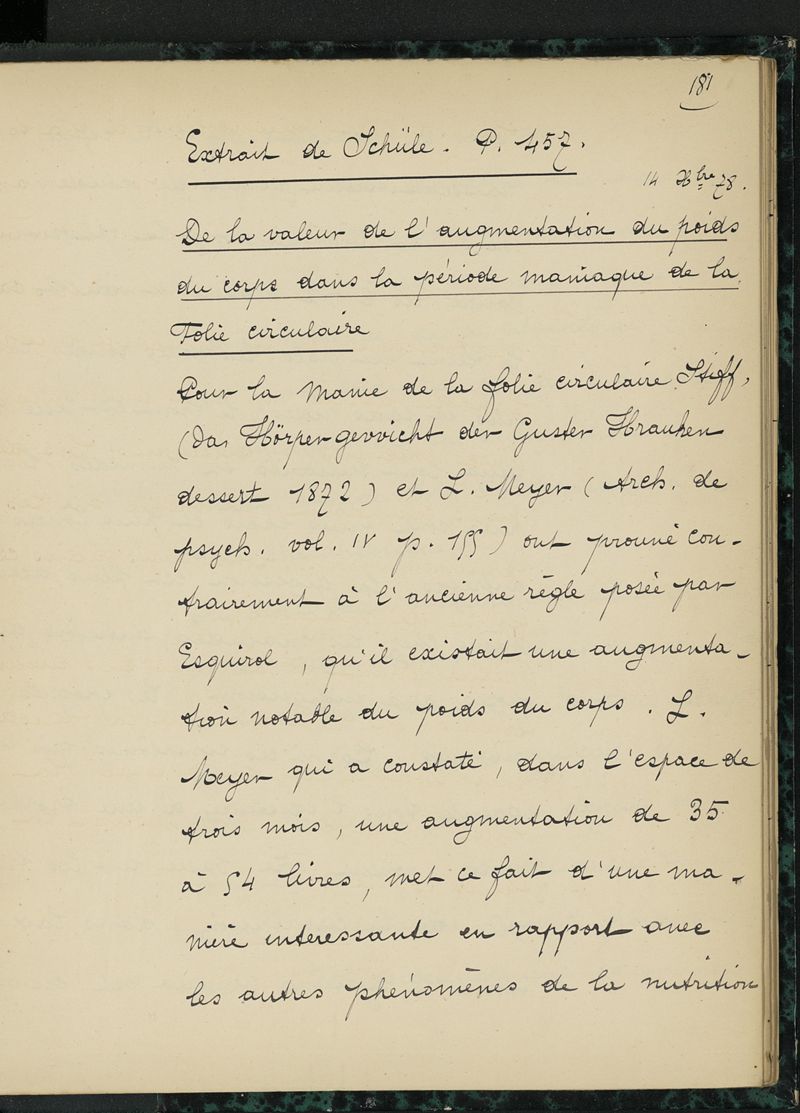 181
Extrait de Schüle. P. 457.
14 Xbre 78.
De la valeur de l'augmentation du poids
du corps dans la période maniaque de la
Folie circulaire
Pour la Manie de la folie circulaire, Stiff,
(Das Hörpergevvicht der Guster Hrauken
dessert 1872) et L. Meyer (Arch. de
psych. vol. IV p. 155) ont prouvé con-
trairement à l'ancienne règle posée par
Esquirol, qu'il existait une augmenta-
tion notable du poids du corps. L.
Meyer qui a constaté, dans l'espace de
trois mois, une augmentation de 35
à 54 livres, met ce fait d'une ma-
nière interessante en rapport avec
les autres phénomènes de la nutrition